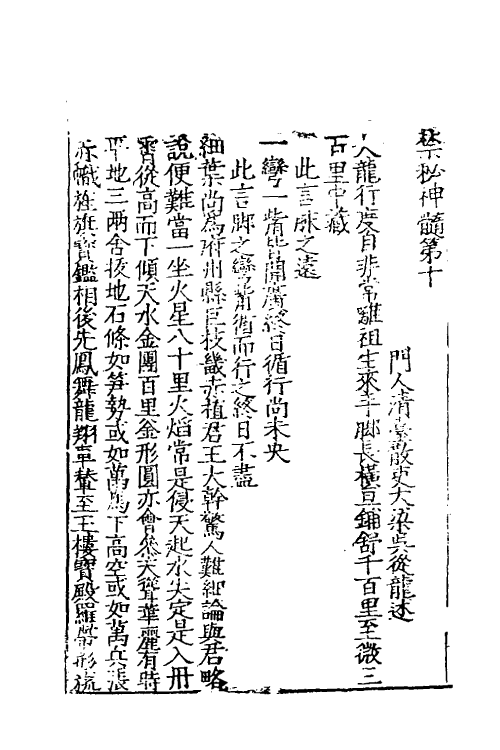 禁秘神髓第十
門人清臺散吏大梁吳從龍述
大龍行度自非常離祖生來手脚長橫亘鋪舒千百里至微三
百里中藏
此言脉之遠
一彎一背皆開廣終日循行尚未央
此言脚之彎背循而行之終日不盡
細葉尚為府州縣巨枝畿赤植君王大幹驚人難細論與君略
說便難當一坐火星八十里火熖常是侵天起水失定是入冊
霄從高而下傾天水金團百里釜形圓亦會參天聳華麗有時
平地三兩舍拔地石條如笋勢或如萬馬下高空或如萬兵張
赤幟旌旗寶鑑相後先鳳舞龍翔車輦至玉樓寶殿羅幣形旒